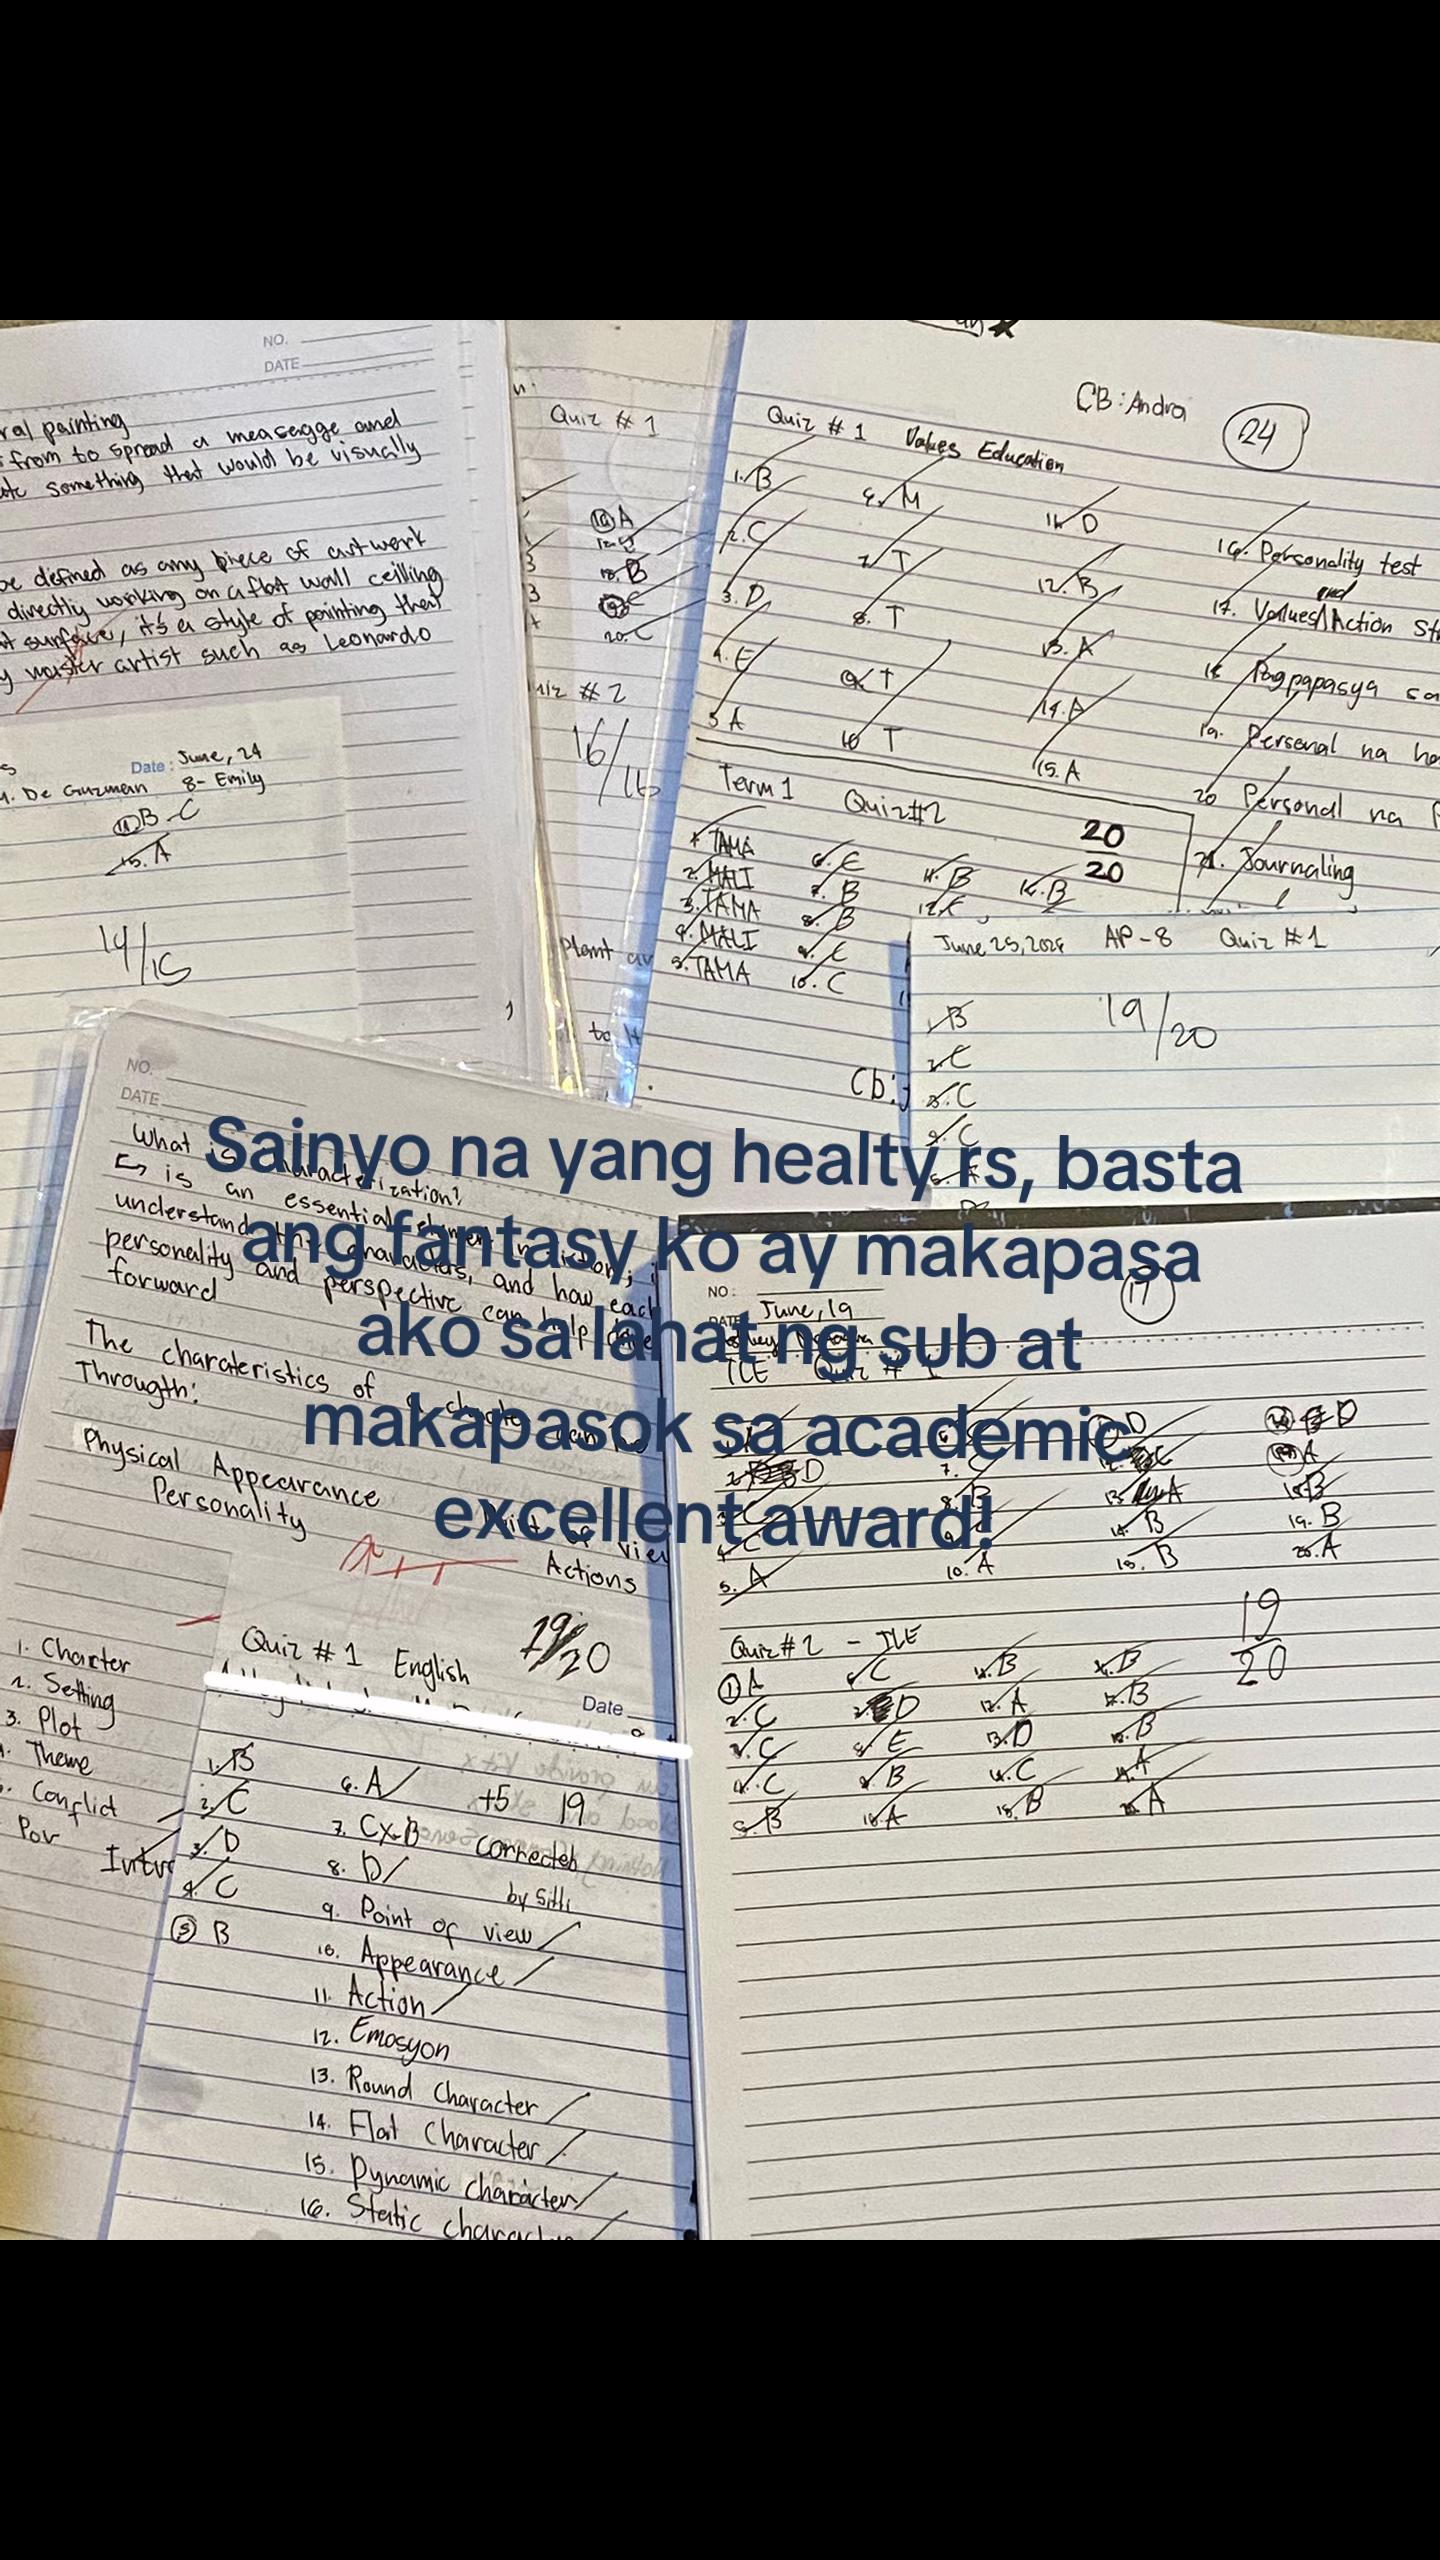 NO.
DATE
painting
from to spread a measagge and
something that would be visually
be defined as any piece of artwork
directly working on a flat wall ceilling
surface, it's a style of painting that
master artist such as Leonardo
Date: June, 24
De Guzman 8- Emily
11 B-C
15. A
14/15
Quiz # 1
A
18. B
20. C
Quiz # 2
16/16
Plant
to
CB: Andra
24
Quiz # 1 Values Education
1. B
2. C
3. D
4. E
5. A
6. M
7. T
8. T
9. T
10. T
11. D
12. B
13. A
14. A
15. A
16. Personality test
and
17. Values/Action
18. Pagpapasya sa
19. Personal na
20 Personal na
21. Journaling
Term 1 Quiz #2
20
20
1. TAMA
2. MALI
3. TAMA
4. MALI
5. TAMA
6. E
7. B
8. B
9. C
10. C
11. B
12. C
16. B
Cb:
June 25, 2024 AP-8 Quiz #1
19/20
1. B
2. C
3. C
4. C
5. A
Sainyo na yang healty rs, basta
ang fantasy ko ay makapasa
ako sa lahat ng sub at
makapasok sa academic
excellent award!
NO.
DATE
What is characterization?
↳ is an essential element in fiction;
understand the characters, and how each
personality and perspective can help drive
forward
The charateristics of a
Througth:
Physical Appearance
Personality
Point of view
Actions
1. Charcter
2. Setting
3. Plot
4. Theme
5. Conflict
Pov
Quiz # 1 English
19/20
Date
1. B
2. C
3. D
4. C
5 B
6. A
7. C x-B
8. D
9. Point of view
10. Appearance
11. Action
12. Emosyon
13. Round Character
14. Flat Character
15. Dynamic character
16. Static character
+5 19
corrected
by Sitti
NO:
DATE
June, 19
17
TLE Quiz # 1
2. D
3. C
4. C
5. A
7. C
8. B
10. A
D
C
13. A
14. B
15. B
D
A
18. B
19. B
20. A
19
20
Quiz # 2 - TLE
1 A
2. C
3. C
4. C
5. B
6. C
7. D
8. E
9. B
10. A
11. B
12. A
13. D
14. C
15. B
16. B
17. B
18. B
19. A
20. A